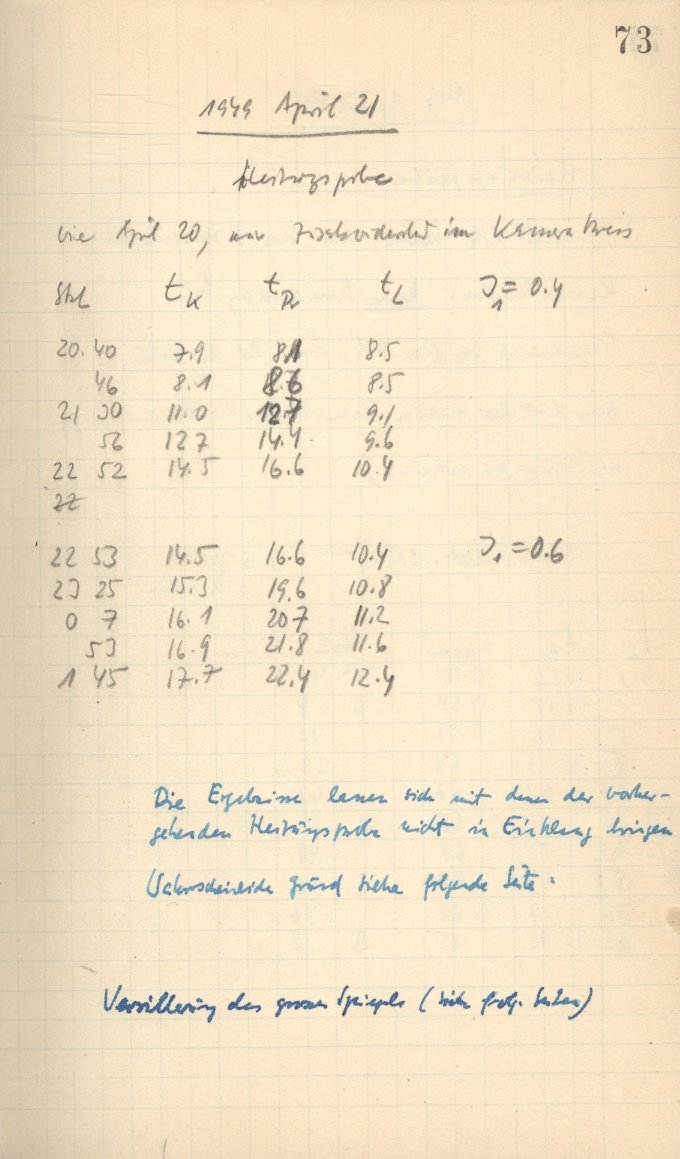 73
1949 April 21
Heizungsprobe
wie April 20, nur im Kamera Kreis
Std t_K t_Pr t_L J_1 = 0.4
20. 40 7.9 8.1 8.5
46 8.1 8.6 8.5
21 30 11.0 12.7 9.1
56 127 14.4 9.6
22 52 14.5 16.6 10.4
22
22 53 14.5 16.6 10.4 J_1 = 0.6
23 25 15.3 19.6 10.8
0 7 16.1 207 11.2
53 16.9 21.8 11.6
1 45 17.7 22.4 12.4
Die Ergebnisse lassen sich mit denen der vorher-
gehenden Heizungsprobe nicht in Einklang bringen
Wahrscheinlich Grund siehe folgende Seite.
Versilberung des grossen Spiegels (siehe folg. Seiten)